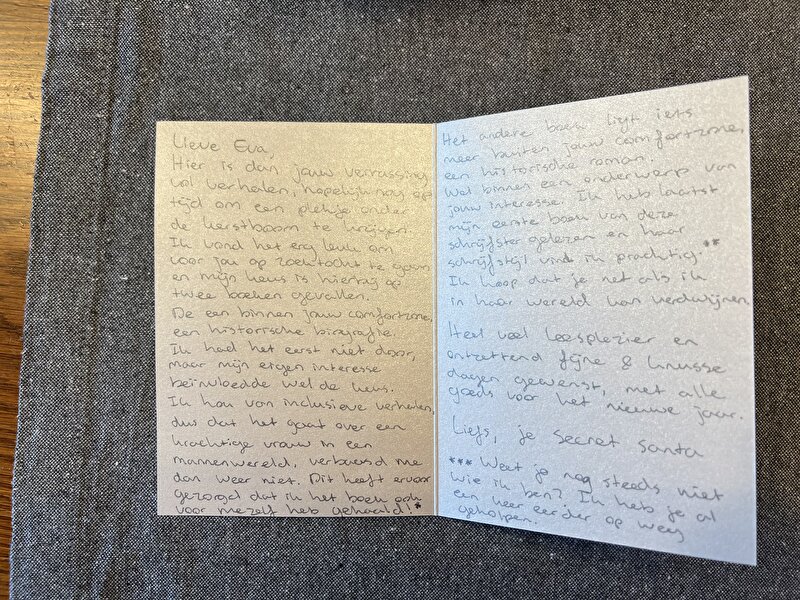 Lieve Eva,
Hier is dan, jouw verrassing
vol verhalen, hopelijk nog op
tijd om een plekje onder
de kerstboom te krijgen.
Ik vond het erg leuk om
voor jou op zoektocht te gaan
en mijn keus is hierbij op
twee boeken gevallen.
De een binnen jouw comfortzone,
een historische biografie.
Ik had het eerst niet door,
maar mijn eigen interesse
beïnvloedde wel de keus.
Ik hou van inclusieve verhalen,
dus dat het gaat over een
krachtige vrouw in een
mannenwereld, verbaasd me
dan weer niet. Dit heeft ervoor
gezorgd dat ik het boek ook
voor mezelf heb gehaald!*
Het andere boek ligt iets
meer buiten jouw comfortzone,
een historische roman.
Wel binnen een onderwerp van
jouw interesse. Ik heb laatst
mijn eerste boek van deze
schrijfster gelezen en haar
schrijfstijl vind ik prachtig.**
Ik hoop dat je net als ik
in haar wereld kan verdwijnen.
Heel veel leesplezier en
ontzettend fijne & knusse
dagen gewenst, met alle
goeds voor het nieuwe jaar.
Liefs, je secret santa
*** Weet je nog steeds niet
wie ik ben? Ik heb je al
een keer eerder op weg
geholpen.